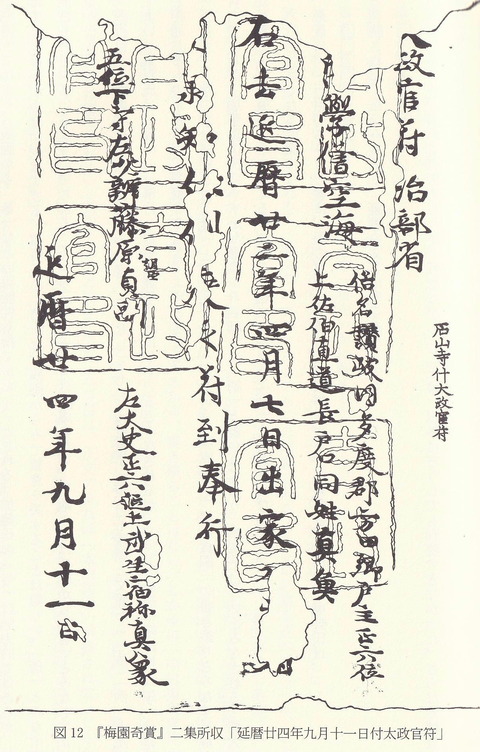 石山寺什大政官符
政官符 治部省
學僧空海
俗名讃岐国多度郡方田郷戸主正六位
上佐伯直道長戸口同姓真魚
右去延暦廿二年四月七日出家
承知 符到奉行
五位下守左少辨藤原貞副
左大史正六位上武生宿祢真象
延暦廿四年九月十一日
図12 『梅園奇賞』二集所収「延暦廿四年九月十一日付太政官符」